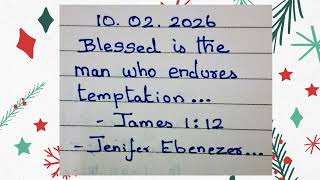 10.02.2026
Blessed is the
man who endures
temptation...
- James 1:12
- Jenifer Ebenezer...